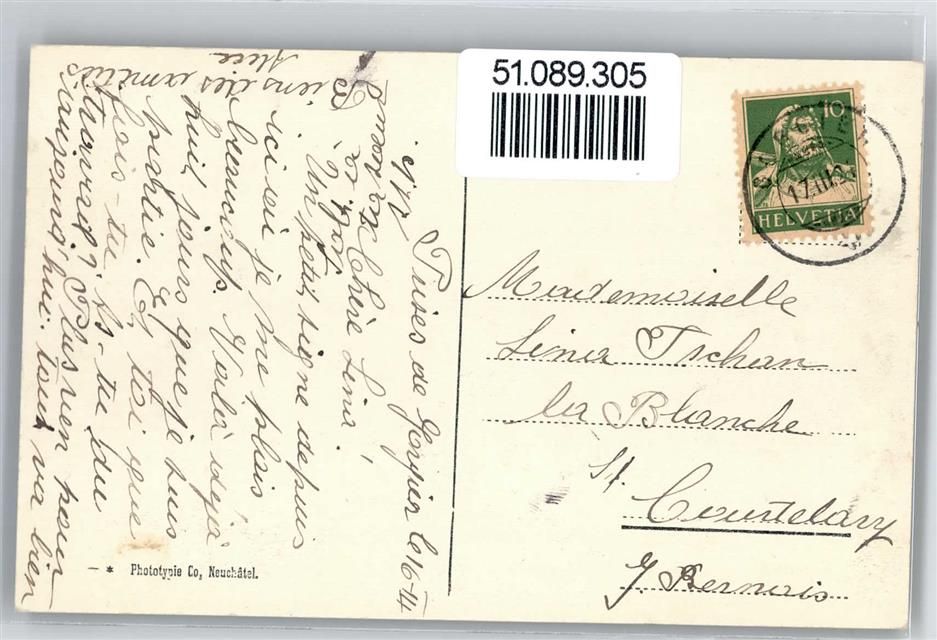 51.089.305
10
HELVETIA
Mademoiselle
Lina Tschan
la Blanche
St.
Courtelary
J. Bernois
Prises de Gorgier le 16-
Chère Lina!
Un petit signe depuis
ici où je me plais
beaucoup. Voilà déjà
huit jours que je suis
partie. Et, toi que
fais-tu? As-tu pu
Plus rien pour
aujourd'hui. tout va bien
Biens des amitiés
Alice
– * Phototypie Co, Neuchâtel.